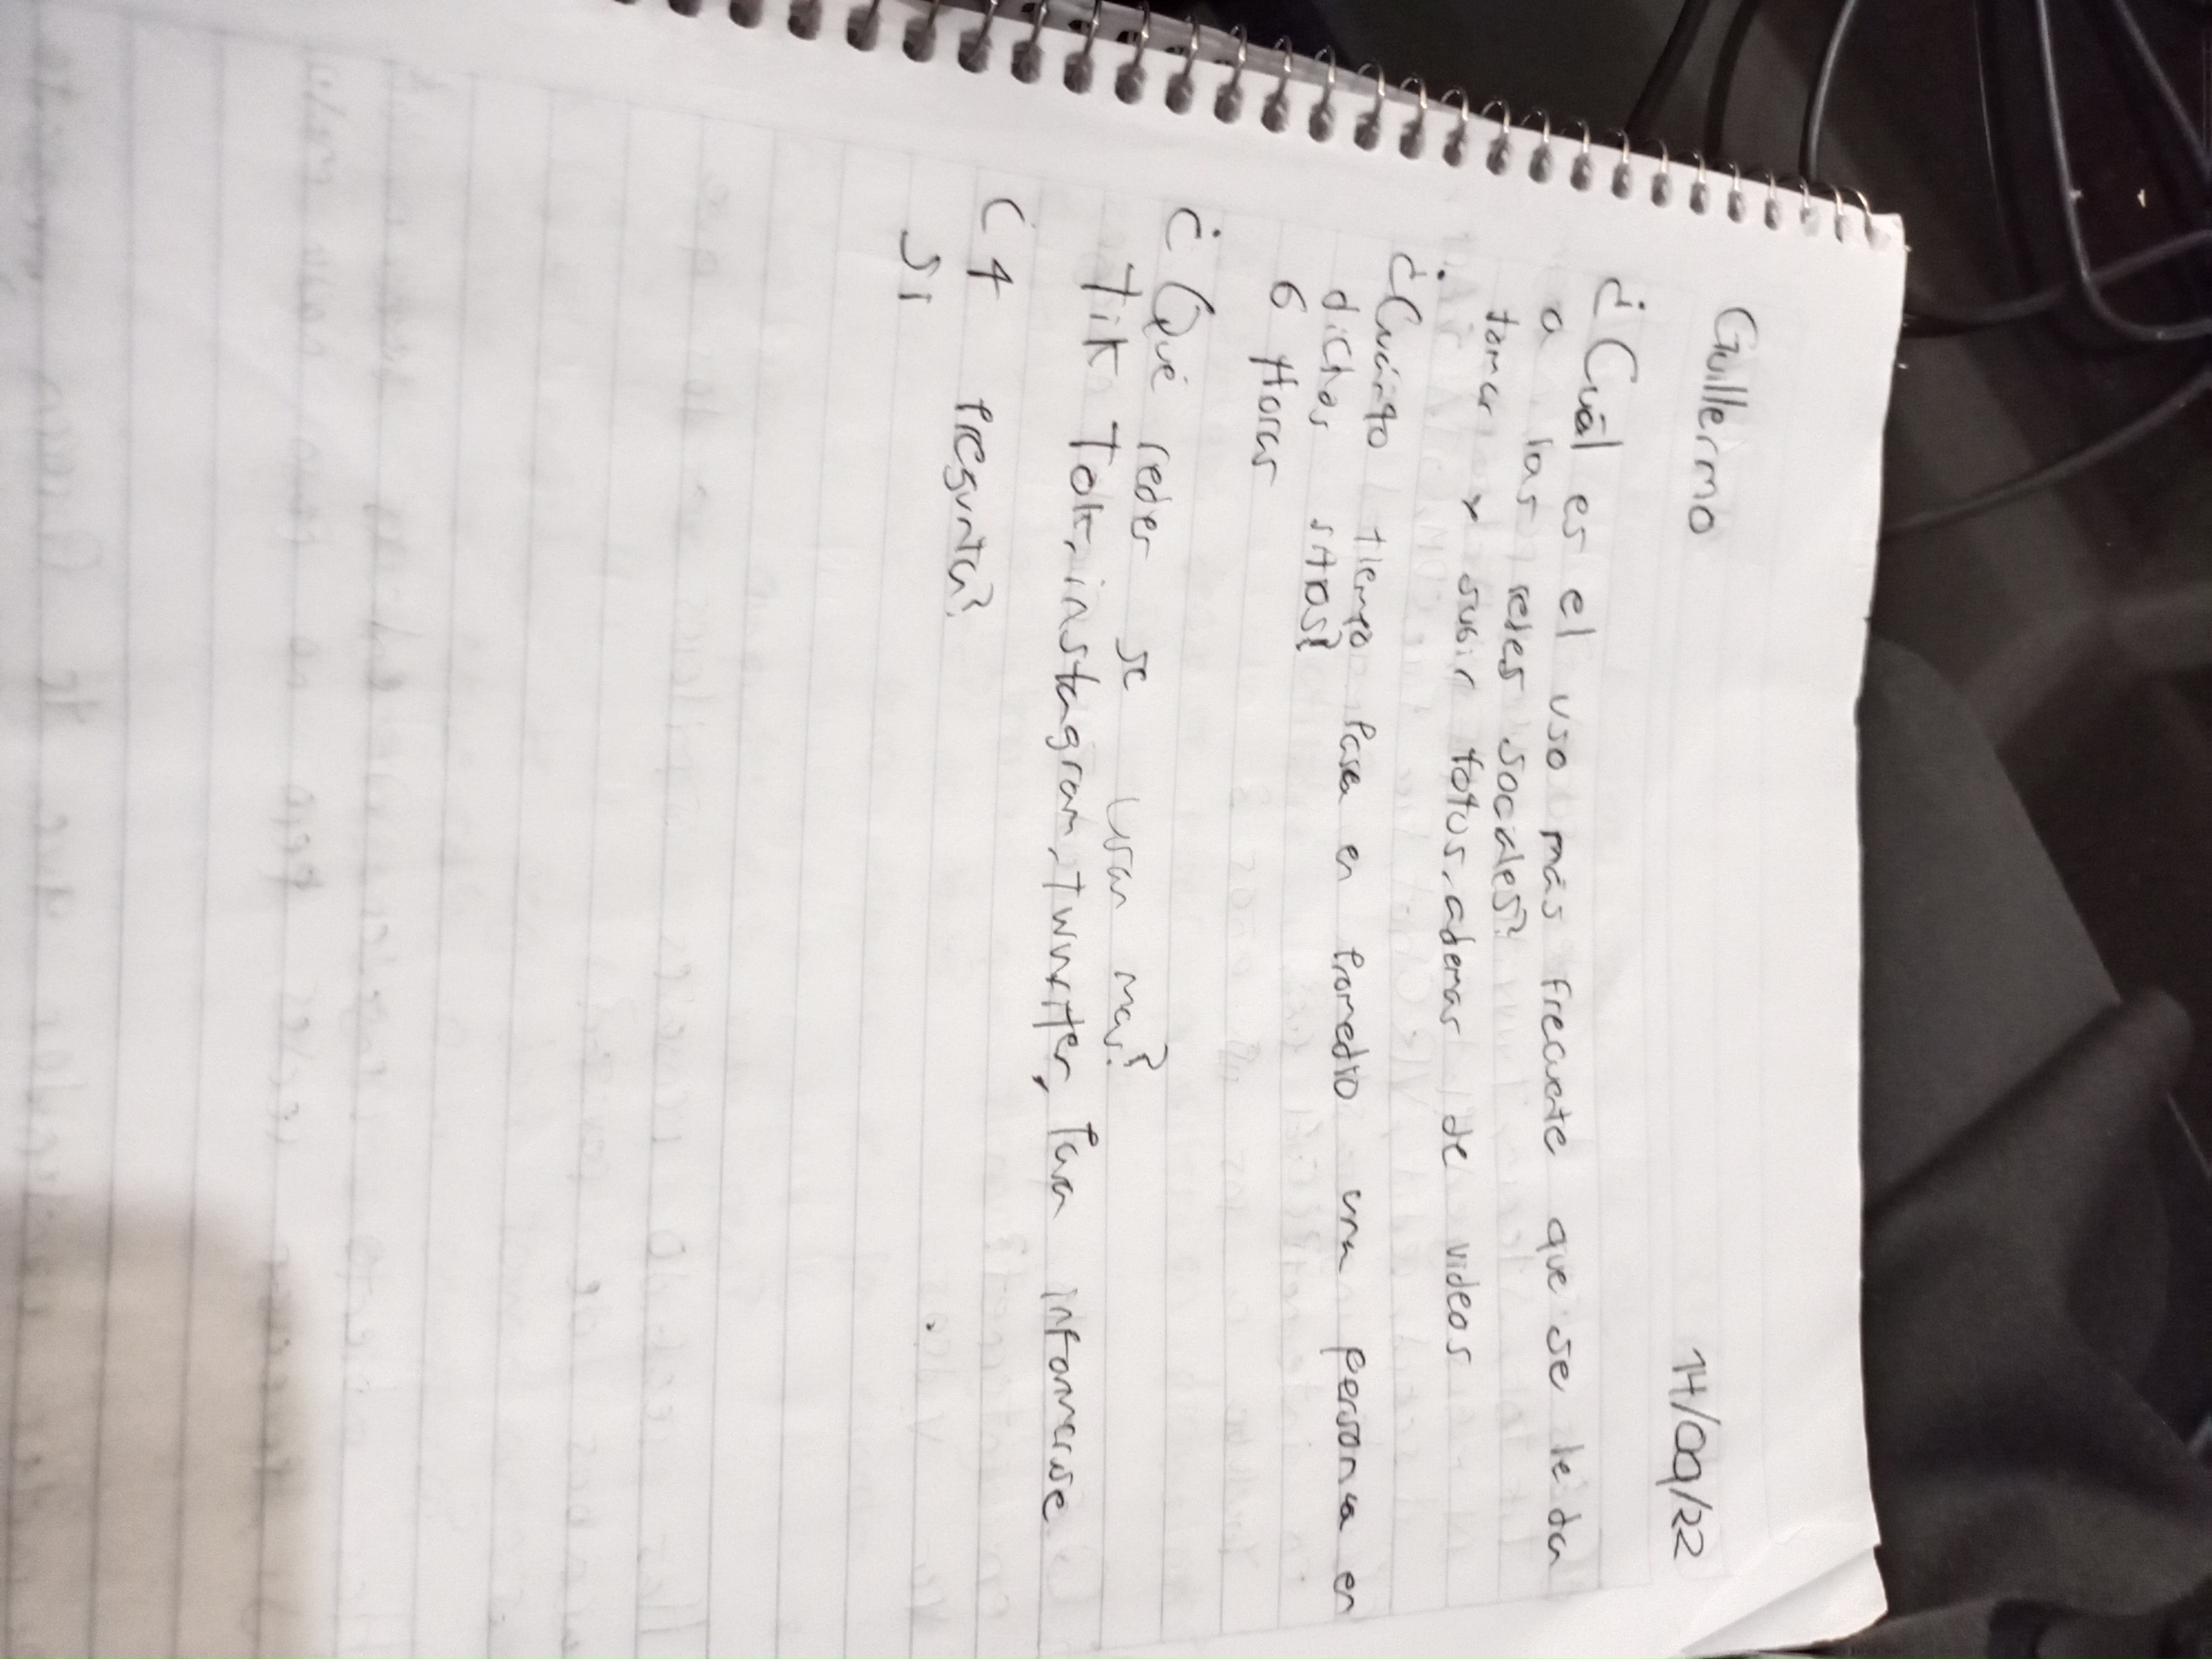 Guillermo 14/09/22
¿Cuál es el uso más frecuente que se le da
a las redes sociales?
tomar y subir fotos, ademas de videos
¿Cuánto tiempo Pasa en Promedio una persona en
dichos sitios?
6 Horas
¿Qué redes se usan mas?
Tik Tok, instagram, twwiter, Para informarse
¿4 Pregunta?
Si